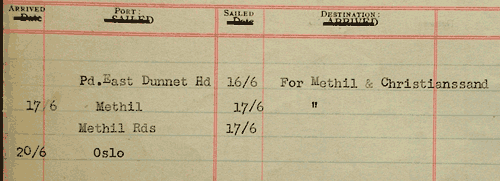 ARRIVED PORT: SAILED DESTINATION:
Date SAILED Date ARRIVED
Pd. East Dunnet Hd 16/6 For Methil & Christianssand
17/6 Methil 17/6 "
Methil Rds 17/6
20/6 Oslo